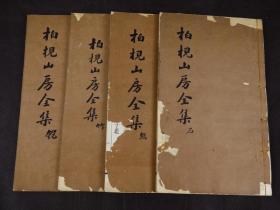 柏梘山房全集 石
柏梘山房全集 絲
柏梘山房全集 竹
柏梘山房全集 匏